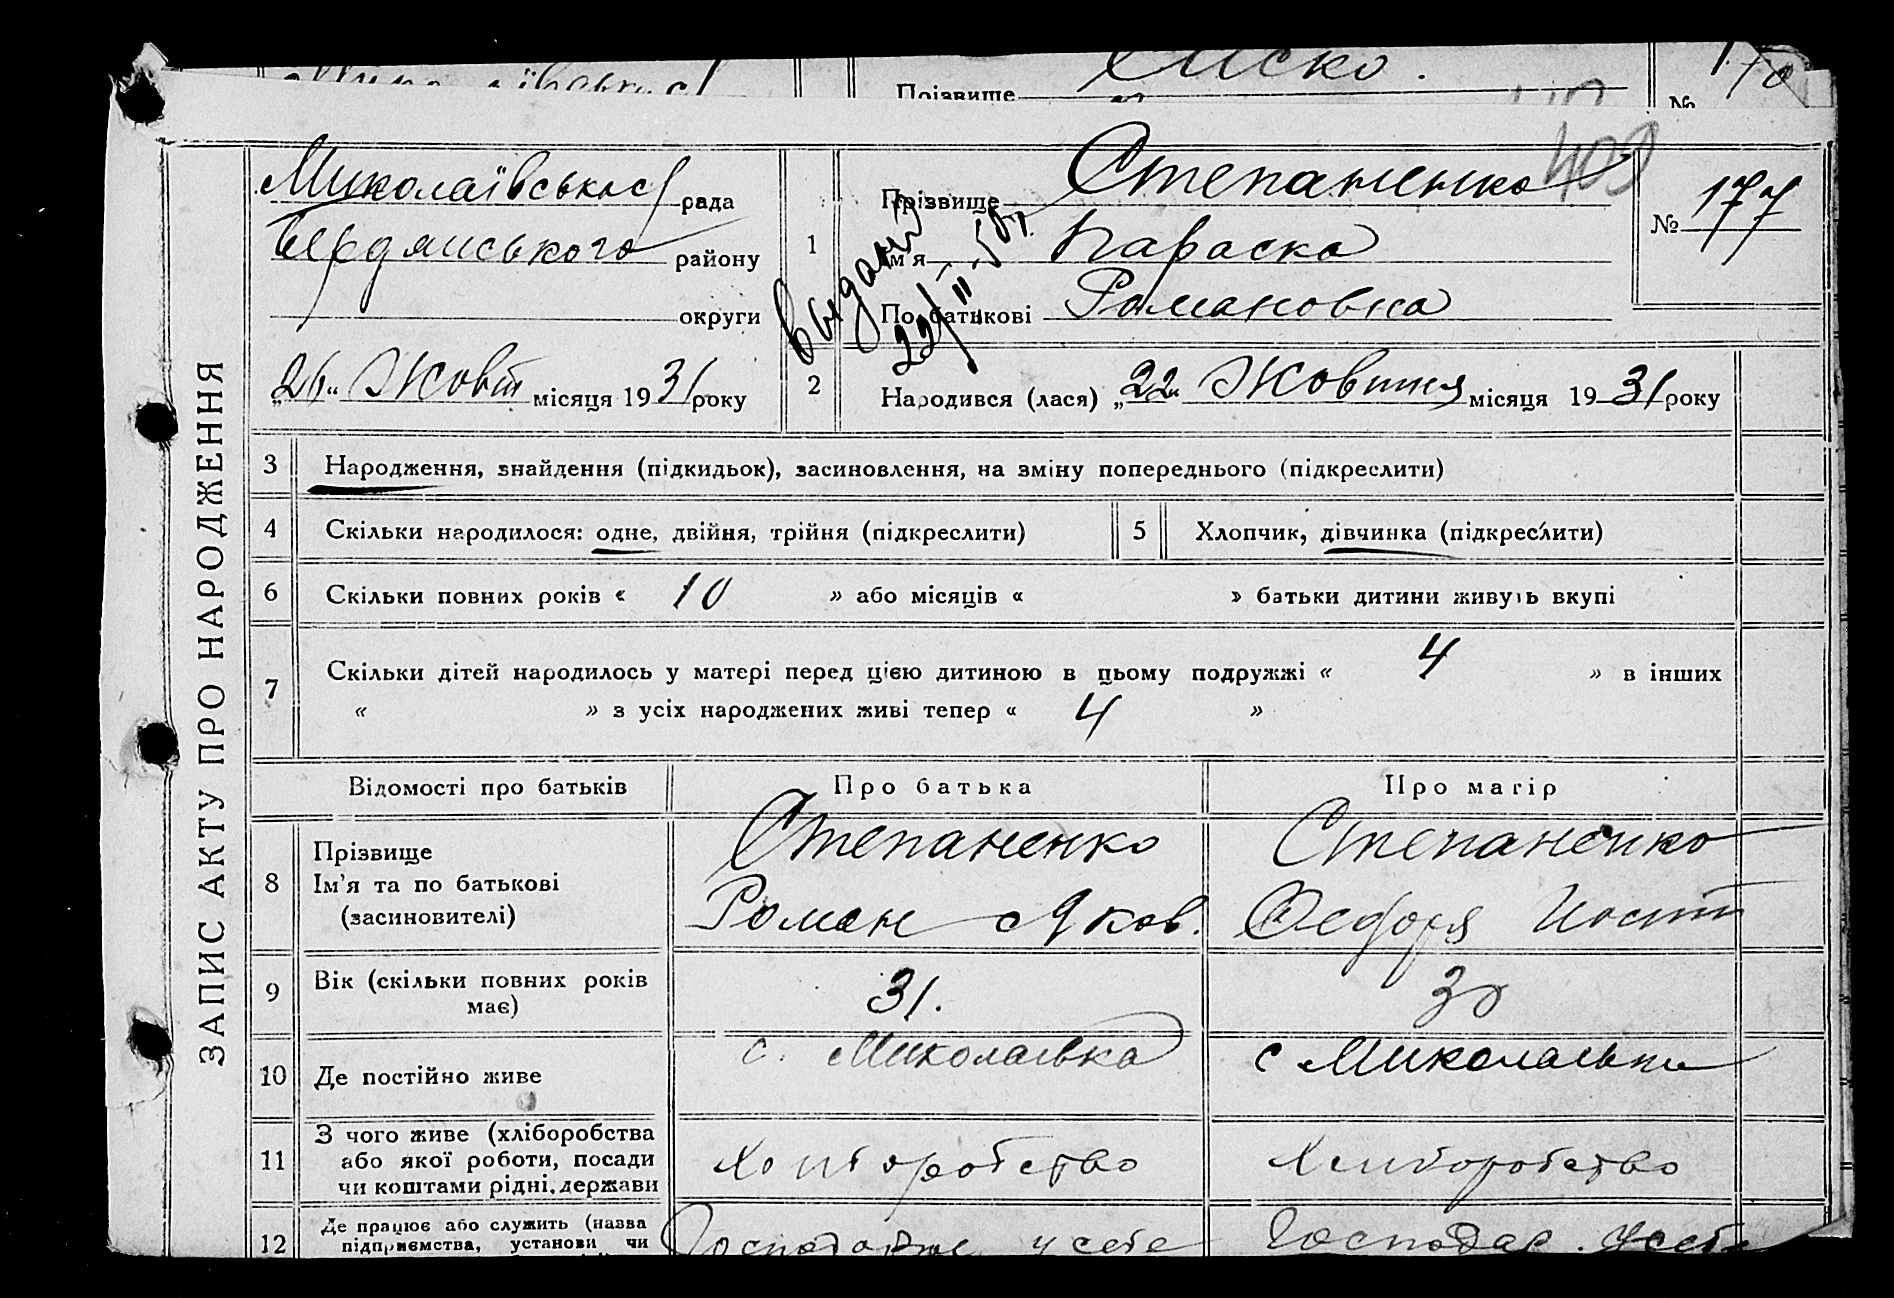 Прізвище
№
ЗАПИС АКТУ ПРО НАРОДЖЕННЯ
Миколаївська рада
Бердянського району
округи
„26“ Жовт місяця 1931 року
1
Прізвище Степаненко
Ім'я Параска
По батькові Романовна
409
№ 177
выдано
22/II-50 г.
2
Народився (лася) „22“ Жовтня місяця 1931 року
3 Народження, знайдення (підкидьок), засиновлення, на зміну попереднього (підкреслити)
4 Скільки народилося: одне, двійня, трійня (підкреслити)
5 Хлопчик, дівчинка (підкреслити)
6 Скільки повних років « 10 » або місяців « » батьки дитини живуть вкупі
7 Скільки дітей народилось у матері перед цією дитиною в цьому подружжі « 4 » в інших
« » з усіх народжених живі тепер « 4 »
Відомості про батьків Про батька Про матір
8 Прізвище
Ім'я та по батькові
(засиновителі)
Степаненко
Роман Яков.
Степаненко
Федора
9 Вік (скільки повних років
має)
31.
30
10 Де постійно живе
с. Миколаївка
с Миколаївка
11 З чого живе (хліборобства
або якої роботи, посади
чи коштами рідні, держави
Хліборобство
Хліборобство
12 Де працює або служить (назва
підприємства, установи чи
у себе
Господар. у себе